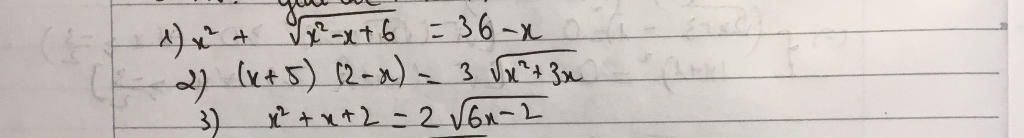 1) x² + √(x²-x+6) = 36-x
2) (x+5) (2-x) = 3 √(x²+3x)
3) x² + x + 2 = 2 √(6x-2)